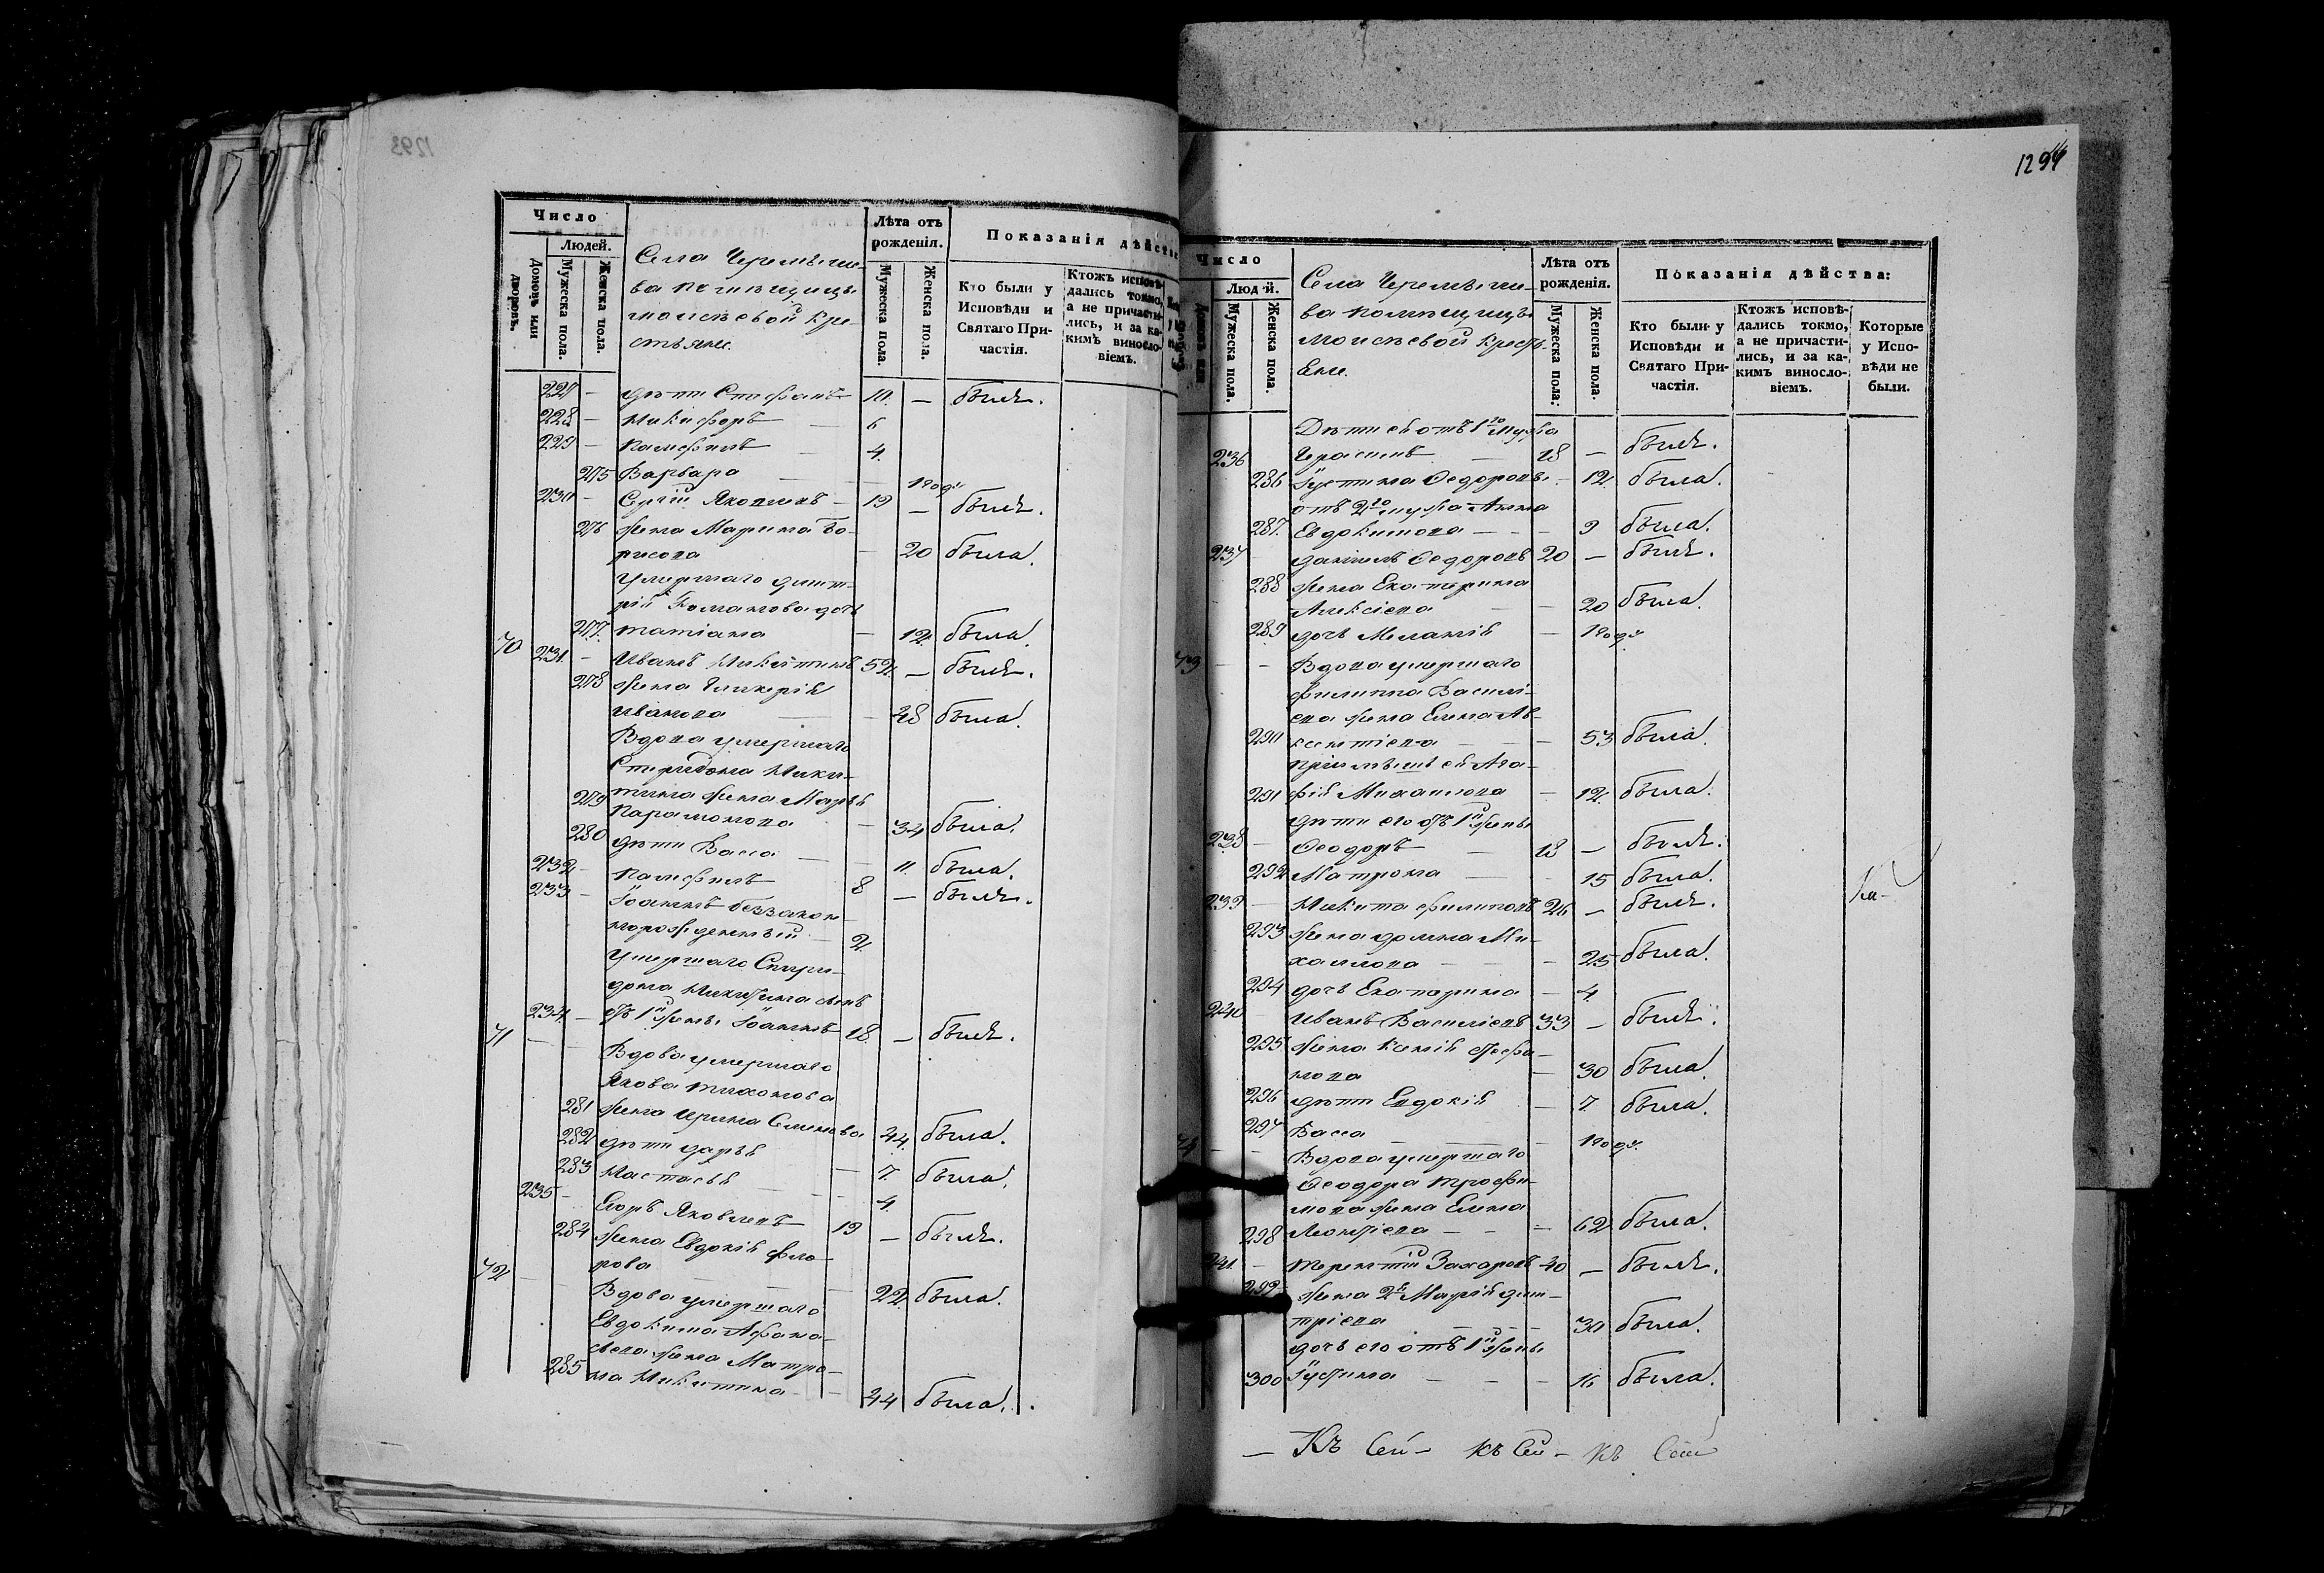 1293
Число
Людей.
Домовъ или дворовъ.
Мужеска пола.
Женска пола.
Села
ва помѣщицы
Моисѣевой кре-
стьяне.
Лѣта отъ
рожденія.
Мужеска пола.
Женска пола.
Показанія дѣйств
Кто были у
Исповѣди и
Святаго При-
частія.
Ктожъ исповѣ-
дались токмо,
а не причасти-
лись, и за ка-
кимъ виносло-
віемъ.
227 – дѣти Стефанъ 10. – былъ.
228 – Никифоръ – 6
229 – Памфилъ – 4.
275 Варвара – году
230 – Сергій Яковлевъ – 19 – былъ.
276 жена Марина Бо-
рисова – 20 была.
умершаго Дмит-
рія Романова дочь
277. Татіана – 12. была.
70 231. – Иванъ Никитинъ 52. – былъ.
278 жена Гликерія
Иванова – 48 была.
Вдова умершаго
Спиридона Ники-
279 тина жена Марья
Парамонова – 34 была.
280 дѣти Васса – 11. была.
232 – Памфилъ 8 – былъ.
233 – Іоаннъ беззакон-
норожденный – 2.
Умершаго Спири-
дона Никитина сынъ
234. – отъ 1й жены Іоаннъ 18. – былъ.
71 – – Вдова умершаго
Якова Тихонова
281 жена Ирина Семенова 44. была.
282 дѣти Дарья – 7. была.
283 Настасья – 4.
235 – Егоръ Яковлевъ 19 – былъ.
284 жена Евдокія Фло-
рова – 22. была.
72 – – Вдова умершаго
Евдокима Афана-
сьева жена Матро-
285 на Никитина – 44 была.
1294
Число
Людей.
Мужеска пола.
Женска пола.
Села
ва помѣщицы
Моисѣевой кресть-
яне.
Лѣта отъ
рожденія.
Мужеска пола.
Женска пола.
Показанія дѣйства:
Кто были у
Исповѣди и
Святаго При-
частія.
Ктожъ исповѣ-
дались токмо,
а не причасти-
лись, и за ка-
кимъ виносло-
віемъ.
Которые
у Испо-
вѣди не
были.
Дѣти ея отъ 1го мужа
236 Герасимъ – 18 – былъ.
286 Іустина Ѳедорова – 12. была.
отъ 2го мужа Анна
287. Евдокимова – 9 была.
237 Даніилъ Ѳедоровъ 20 – былъ.
288 жена Екатерина
Алексіева – 20 была.
289 дочь Меланія – 1 году.
73 – – Вдова умершаго
Филиппа Василі-
ева жена Елена Ав-
290 ксентіева – 53 была.
пріемышъ ея Ага-
291 фія Михаилова – 12. была.
дѣти его отъ 1й жены
238 – Ѳеодоръ – 18 – былъ.
292 Матрона – 15 была.
239 – Никита Филиповъ 26 – былъ.
293 жена Домна Ми-
хаилова – 25 была.
294 дочь Екатерина – 4.
240 Иванъ Василіевъ 33 – былъ.
295 жена Ксенія
нова – 30 была.
296 дѣти Евдокія – 7. была.
297 Васса – 1 году.
– – Вдова умершаго
Ѳеодора Трофи-
мова жена Елена
298 Леонтіева – 62 была.
241 – Терентій Захаровъ 40 – былъ.
299 жена 2я Марія Дми-
тріева – 30 была.
дочь его отъ 1й жены
300 Іустина – 16 была.
– Къ Сей – къ Сей – къ Сей